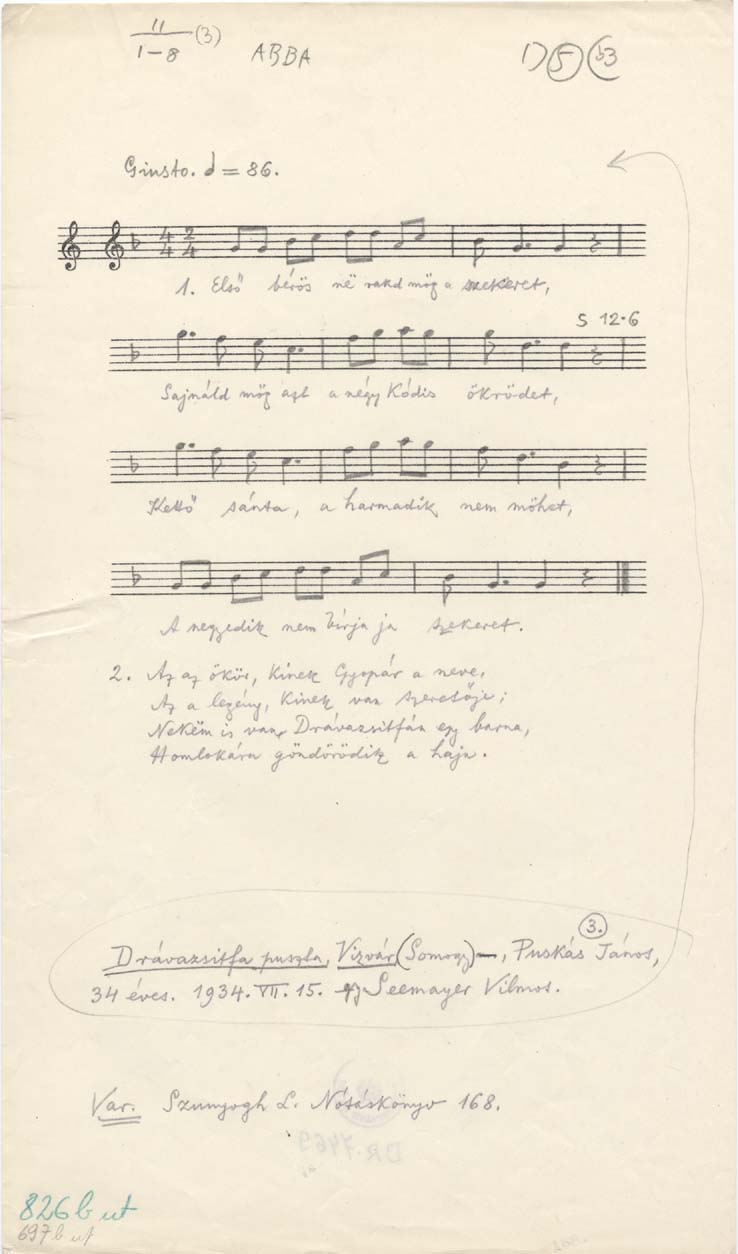 11
1-8 (3) ABBA 1) 5 b3
Giusto. = 86.
4 2
4 4
1. Első bérös në rakd mög a szekeret,
S 12·6
Sajnáld mög azt a négy kódis ökrödet,
Kettő sánta, a harmadik nem möhet,
A negyedik nem bírja ja szekeret.
2. Az az ökör, kinek Gyopár a neve,
Az a legény, kinek van szeretője;
Nekëm is van Drávazsitfán egy barna,
Homlokára göndörödik a haja.
3.
Drávazsitfa puszta, Vizvár (Somogy) –, Puskás János,
34 éves. 1934. VII. 15. gy. Seemayer Vilmos.
Var. Szunyogh L. Nótáskönyv 168.
DR-7469
826 b ut
697 b ut